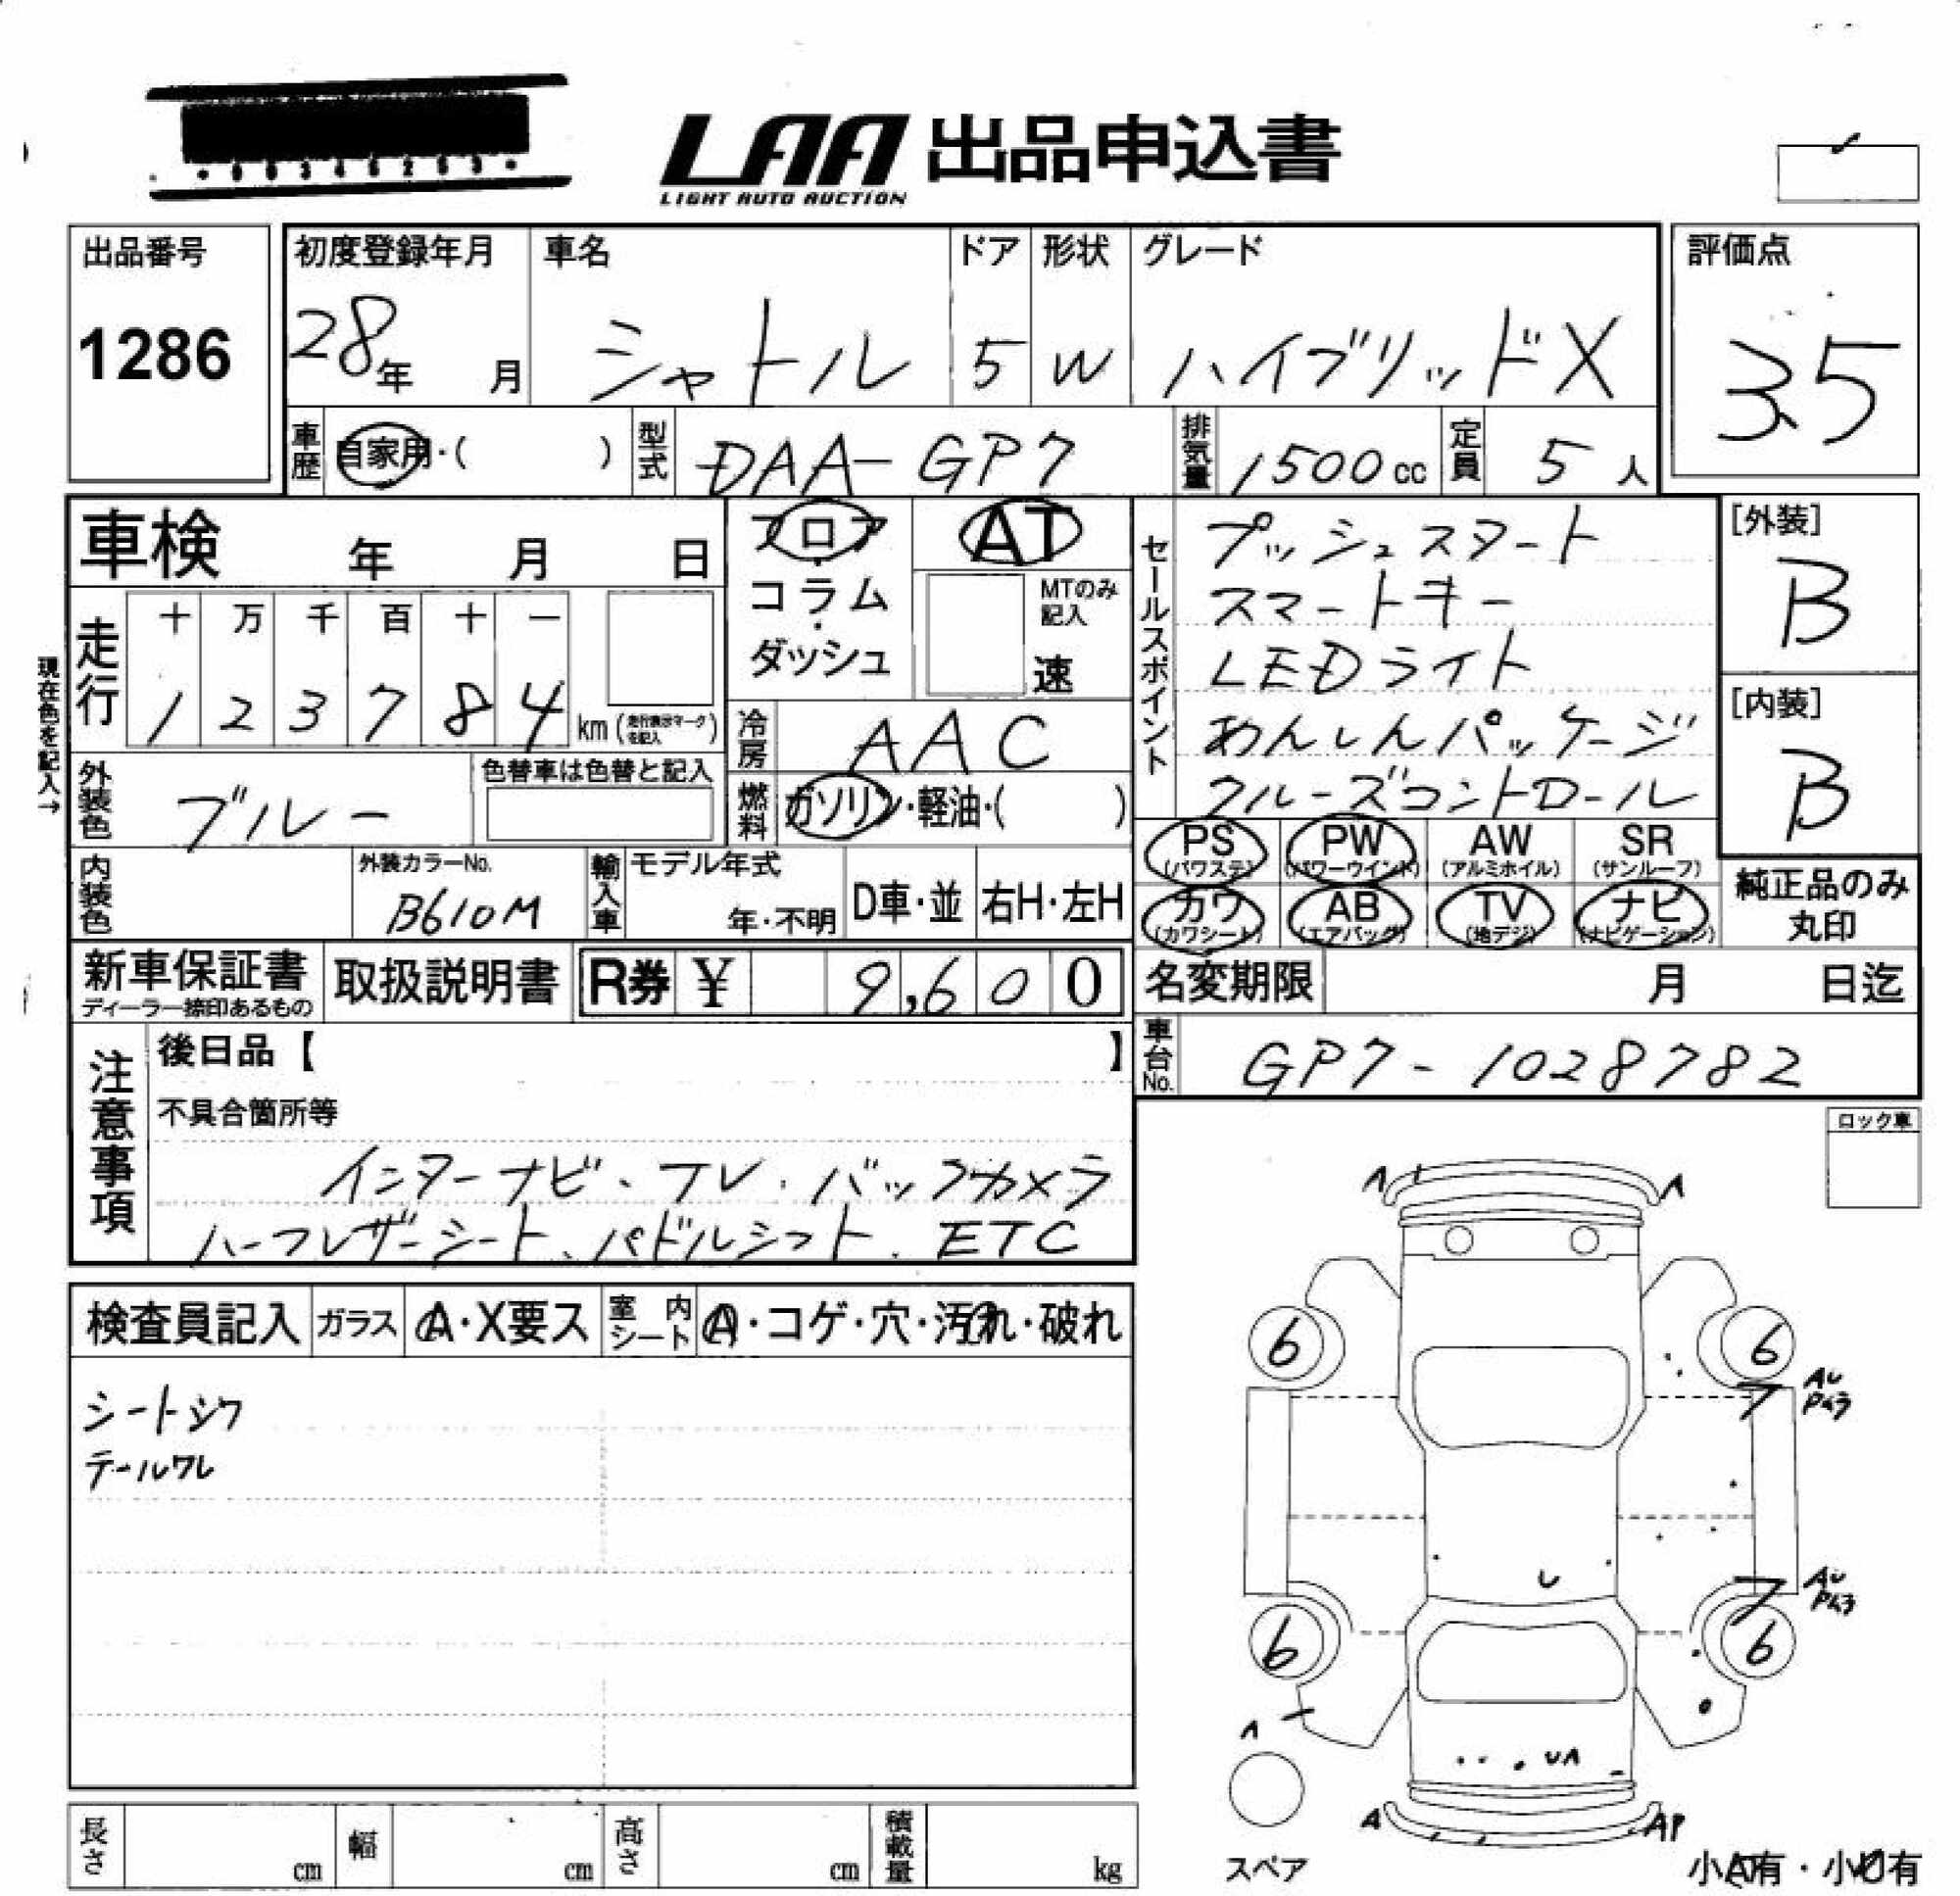 LAA 出品申込書
LIGHT AUTO AUCTION
出品番号 初度登録年月 車名 ドア 形状 グレード 評価点
1286 28年 月 シャトル 5 W ハイブリッドX 3.5
車歴 自家用・( ) 型式 DAA-GP7 排気量 1500cc 定員 5人
車検 年 月 日
フロア・コラム・ダッシュ
AT
MTのみ記入
速
走行 十 万 千 百 十 一
1 2 3 7 8 4 km (走行表示マークを記入)
現在色を記入→
外装色 ブルー 色替車は色替と記入
冷房 AAC
燃料 ガソリン・軽油・( )
セールスポイント
プッシュスタート
スマートキー
LEDライト
あんしんパッケージ
クルーズコントロール
[外装]
B
[内装]
B
PS PW AW SR
(パワステ) (パワーウインド) (アルミホイル) (サンルーフ)
カワ AB TV ナビ
(カワシート) (エアバッグ) (地デジ) (ナビゲーション)
純正品のみ
丸印
内装色 外装カラーNo. B610M 輸入車 モデル年式 年・不明 D車・並 右H・左H
新車保証書 取扱説明書 R券 ¥ 9,600
ディーラー捺印あるもの
名変期限 月 日迄
車台No. GP7-1028782
注意事項
後日品【 】
不具合箇所等
インターナビ、TV、バックカメラ
ハーフレザーシート、パドルシフト、ETC
ロック車
検査員記入 ガラス A・X要ス 室内シート A・コゲ・穴・汚れ・破れ
シートシワ
テールワレ
A A
6 6
7 AU
7 AU
U
6 6
A
UA
A AP
スペア
小A有・小U有
長さ cm 幅 cm 高さ cm 積載量 kg